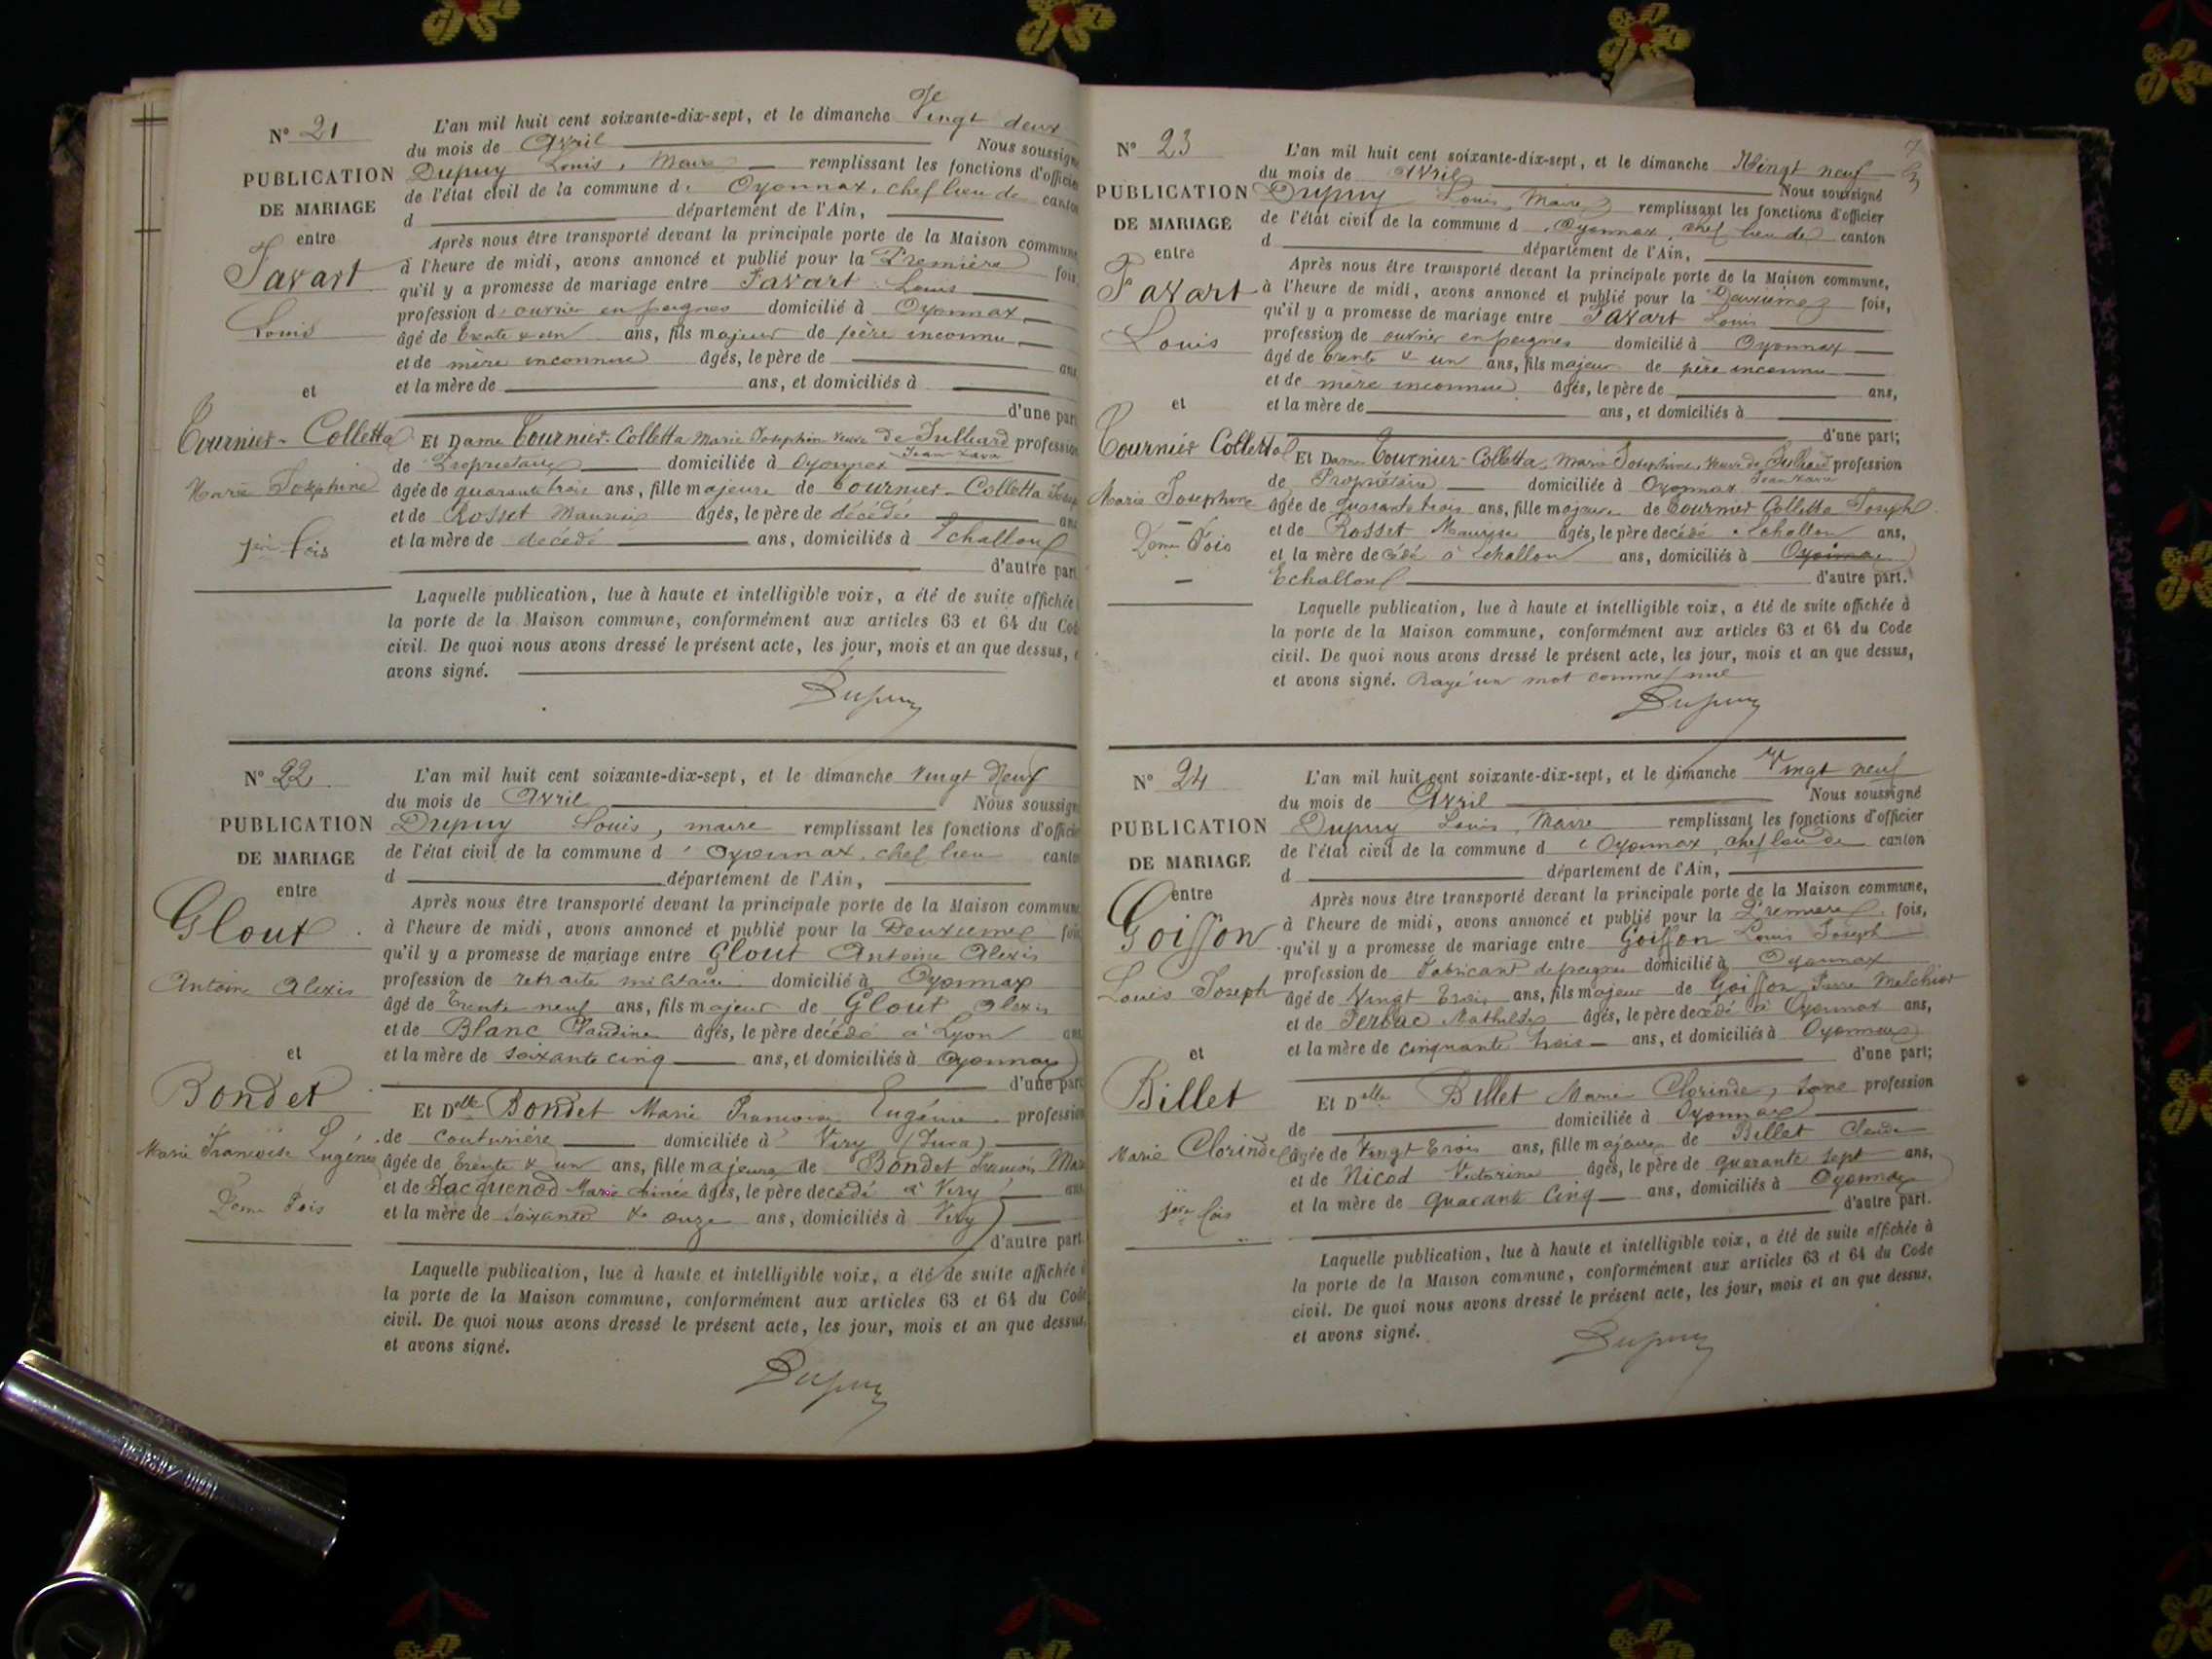 N° 21
PUBLICATION
DE MARIAGE
entre
Favart
Louis
et
Tournier-Colletta
Marie Josephine
1ère fois
L'an mil huit cent soixante-dix-sept, et le dimanche Vingt deux
du mois de Avril Nous soussigné
Dupuy Louis, Maire remplissant les fonctions d'officier
de l'état civil de la commune d' Oyonnax, chef lieu de canton
d département de l'Ain,
Après nous être transporté devant la principale porte de la Maison commune,
à l'heure de midi, avons annoncé et publié pour la Première fois,
qu'il y a promesse de mariage entre Favart Louis
profession d' ouvrier en peignes domicilié à Oyonnax
âgé de trente & un ans, fils majeur de père inconnu
et de mère inconnue âgés, le père de ans
et la mère de ans, et domiciliés à
d'une part
Et Dame Tournier-Colletta Marie Josephine veuve de Julliard profession
Jean Xavier
de Propriétaire domiciliée à Oyonnax
âgée de quarante trois ans, fille majeure de Tournier-Colletta Joseph
et de Rosset Maurise âgés, le père de décédé ans
et la mère de décédé ans, domiciliés à Echallon
d'autre part
Laquelle publication, lue à haute et intelligible voix, a été de suite affichée à
la porte de la Maison commune, conformément aux articles 63 et 64 du Code
civil. De quoi nous avons dressé le présent acte, les jour, mois et an que dessus, et
avons signé.
Dupuy
N° 22
PUBLICATION
DE MARIAGE
entre
Glout
Antoine Alexis
et
Bondet
Marie Francoise Eugénie
2eme Fois
L'an mil huit cent soixante-dix-sept, et le dimanche Vingt Neuf
du mois de Avril Nous soussigné
Dupuy Louis, maire remplissant les fonctions d'officier
de l'état civil de la commune d' Oyonnax, chef lieu canton
d département de l'Ain,
Après nous être transporté devant la principale porte de la Maison commune
à l'heure de midi, avons annoncé et publié pour la Deuxieme fois
qu'il y a promesse de mariage entre Glout Antoine Alexis
profession de retraite militaire domicilié à Oyonnax
âgé de Trente neuf ans, fils majeur de Glout Alexis
et de Blanc Claudine âgés, le père decédé à Lyon ans
et la mère de soixante cinq ans, et domiciliés à Oyonnax
d'une part
Et Delle Bondet Marie Francoise Eugénie profession
de couturière domiciliée à Viry (Jura)
âgée de trente & un ans, fille majeure de Bondet Francois Marie
et de Jacquenod Marie âgés, le père decédé à Viry ans
et la mère de soixante & onze ans, domiciliés à Viry
d'autre part
Laquelle publication, lue à haute et intelligible voix, a été de suite affichée à
la porte de la Maison commune, conformément aux articles 63 et 64 du Code
civil. De quoi nous avons dressé le présent acte, les jour, mois et an que dessus,
et avons signé.
Dupuy
N° 23
PUBLICATION
DE MARIAGE
entre
Favart
Louis
et
Tournier Colletta
Marie Josephine
2eme Fois
L'an mil huit cent soixante-dix-sept, et le dimanche Vingt neuf
du mois de Avril Nous soussigné
Dupuy Louis, Maire remplissant les fonctions d'officier
de l'état civil de la commune d' Oyonnax, chef lieu de canton
d département de l'Ain,
Après nous être transporté devant la principale porte de la Maison commune,
à l'heure de midi, avons annoncé et publié pour la Deuxieme fois,
qu'il y a promesse de mariage entre Favart Louis
profession de ouvrier en peignes domicilié à Oyonnax
âgé de trente & un ans, fils majeur de père inconnu
et de mère inconnue âgés, le père de ans,
et la mère de ans, et domiciliés à
d'une part;
Et Dame Tournier-Colletta, Marie Josephine, veuve de Julliard profession
Jean Xavier
de Propriétaire domiciliée à Oyonnax
âgée de quarante trois ans, fille majeure de Tournier Colletta Joseph
et de Rosset Maurise âgés, le père decédé à Echallon ans,
et la mère decédé à Echallon ans, domiciliés à Oyonnax
Echallon d'autre part.
Laquelle publication, lue à haute et intelligible voix, a été de suite affichée à
la porte de la Maison commune, conformément aux articles 63 et 64 du Code
civil. De quoi nous avons dressé le présent acte, les jour, mois et an que dessus,
et avons signé. Rayé un mot comme nul
Dupuy
N° 24
PUBLICATION
DE MARIAGE
entre
Goiffon
Louis Joseph
et
Billet
Marie Clorinde
1ère fois
L'an mil huit cent soixante-dix-sept, et le dimanche Vingt neuf
du mois de Avril Nous soussigné
Dupuy Louis, Maire remplissant les fonctions d'officier
de l'état civil de la commune d' Oyonnax, chef lieu de canton
d département de l'Ain,
Après nous être transporté devant la principale porte de la Maison commune,
à l'heure de midi, avons annoncé et publié pour la Premiere fois,
qu'il y a promesse de mariage entre Goiffon Louis Joseph
profession de Fabricant de peignes domicilié à Oyonnax
âgé de Vingt trois ans, fils majeur de Goiffon Pierre Melchior
et de Mathilde âgés, le père decédé à Oyonnax ans,
et la mère de cinquante trois ans, et domiciliés à Oyonnax
d'une part;
Et Delle Billet Marie Clorinde, sans profession
de domiciliée à Oyonnax
âgée de Vingt trois ans, fille majeure de Billet Claude
et de Nicod Victorine âgés, le père de quarante sept ans,
et la mère de quarante cinq ans, domiciliés à Oyonnax
d'autre part.
Laquelle publication, lue à haute et intelligible voix, a été de suite affichée à
la porte de la Maison commune, conformément aux articles 63 et 64 du Code
civil. De quoi nous avons dressé le présent acte, les jour, mois et an que dessus,
et avons signé.
Dupuy